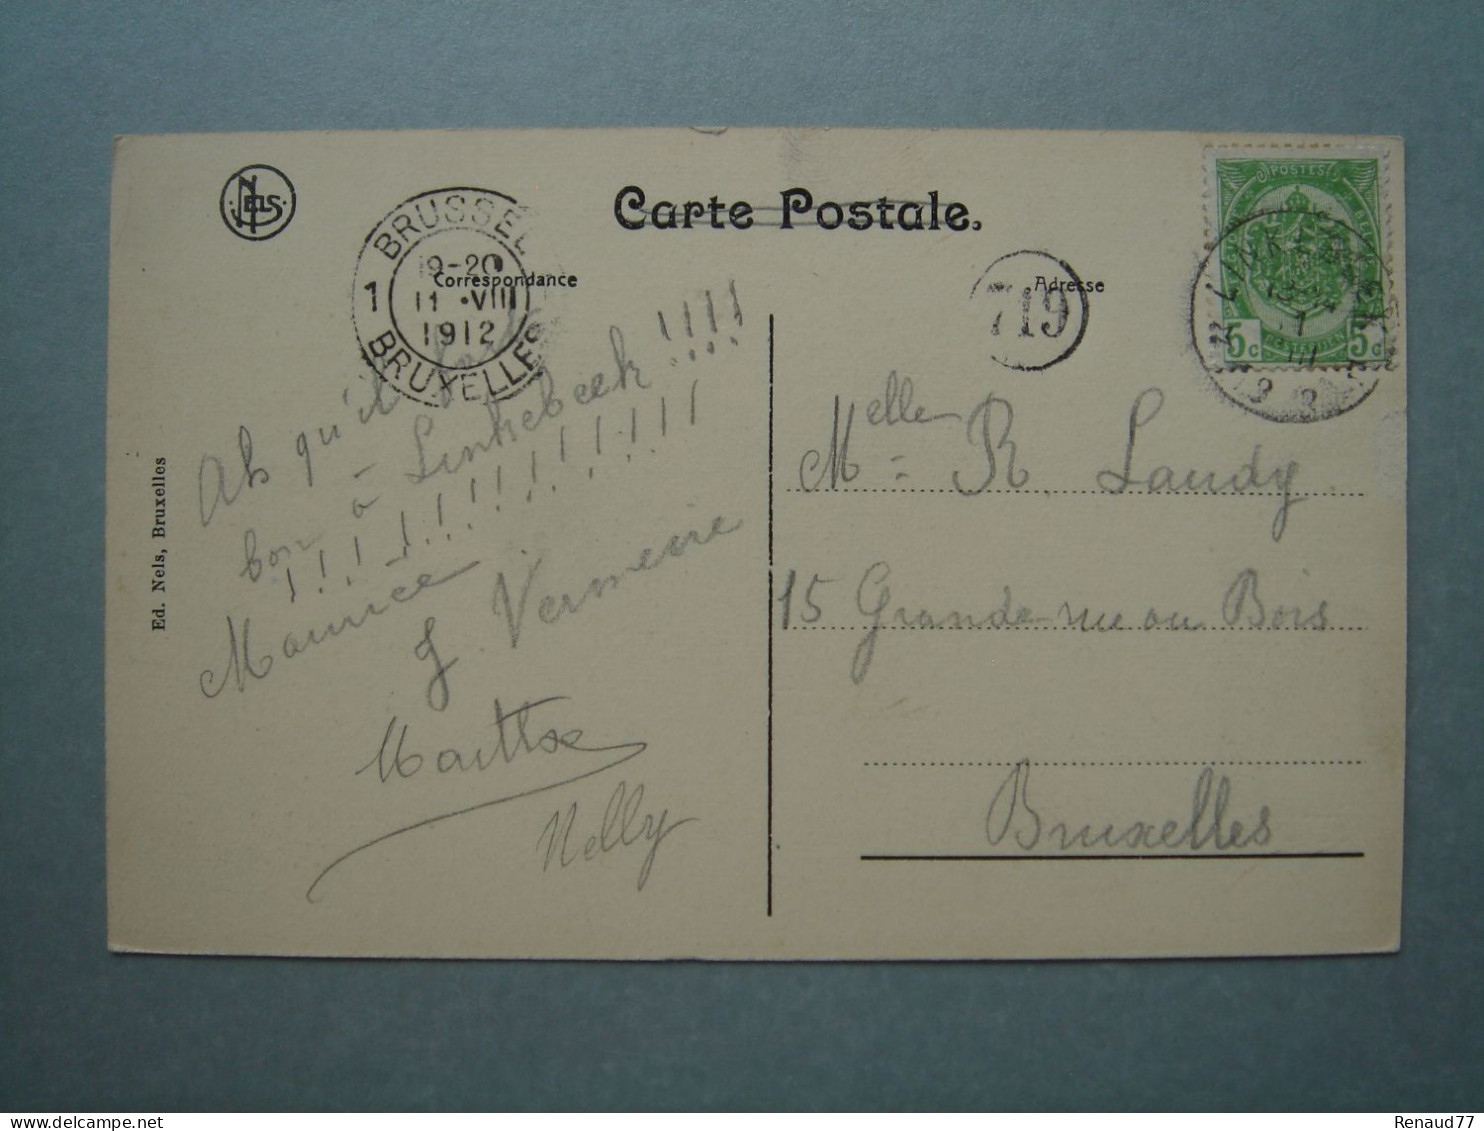 NELS
BRUSSEL
19-20
11 ·VIII
1912
1
BRUXELLES
Carte Postale.
Correspondance
Adresse
719
POSTES
5c 5c
Ah qu'il fait
bon à Linkebeek !!!!
! ! ! ! ! ! ! ! ! ! ! ! ! !
Maurice
J. Vermeire
Nelly
Melle R Laudy
15 Grande-rue au Bois
Bruxelles
Ed. Nels, Bruxelles
Renaud77